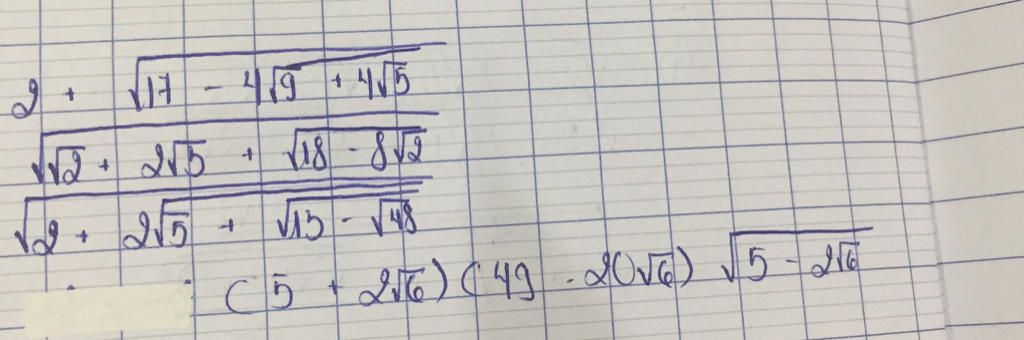 2 + √(17 - 4√(9 + 4√5))
√(√2 + 2√5 + √(18 - 8√2))
√(2 + 2√(5 + √(13 - √48)))
(5 + 2√6)(49 - 20√6) √(5 - 2√6)